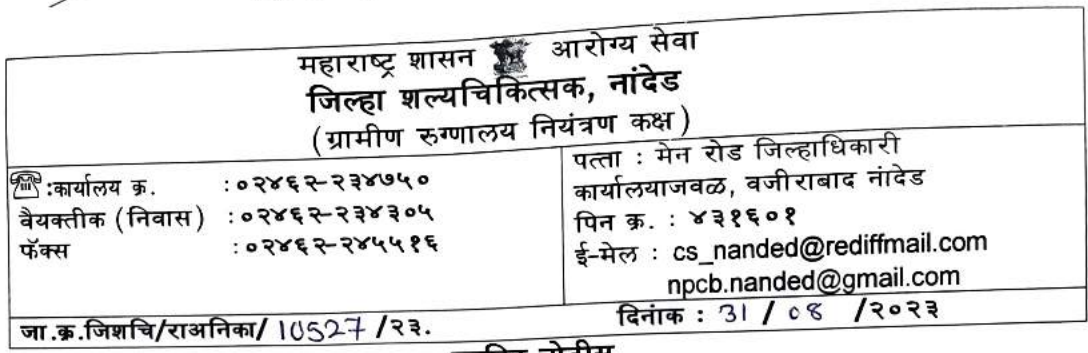 महाराष्ट्र शासन आरोग्य सेवा
जिल्हा शल्यचिकित्सक, नांदेड
(ग्रामीण रुग्णालय नियंत्रण कक्ष)
:कार्यालय क्र. :०२४६२-२३४७५०
वैयक्तीक (निवास) :०२४६२-२३४३०५
फॅक्स :०२४६२-२४५५१६
पत्ता : मेन रोड जिल्हाधिकारी
कार्यालयाजवळ, वजीराबाद नांदेड
पिन क्र. : ४३१६०१
ई-मेल : cs_nanded@rediffmail.com
npcb.nanded@gmail.com
जा.क्र.जिशचि/राअनिका/ 10527 /२३.
दिनांक : 31 / 08 /२०२३